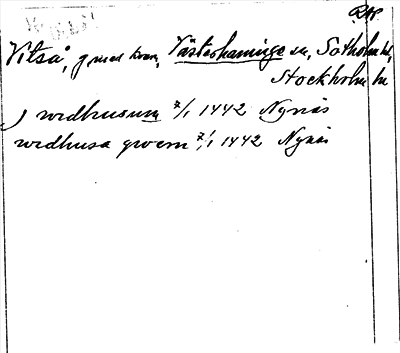 RAP.
Vitså, g med kvarn, Västerhaninge sn, Sotholms hd,
Stockholms län
J widhusum 7/1 1442 Nynäs
widhusa qwern 7/1 1442 Nynäs